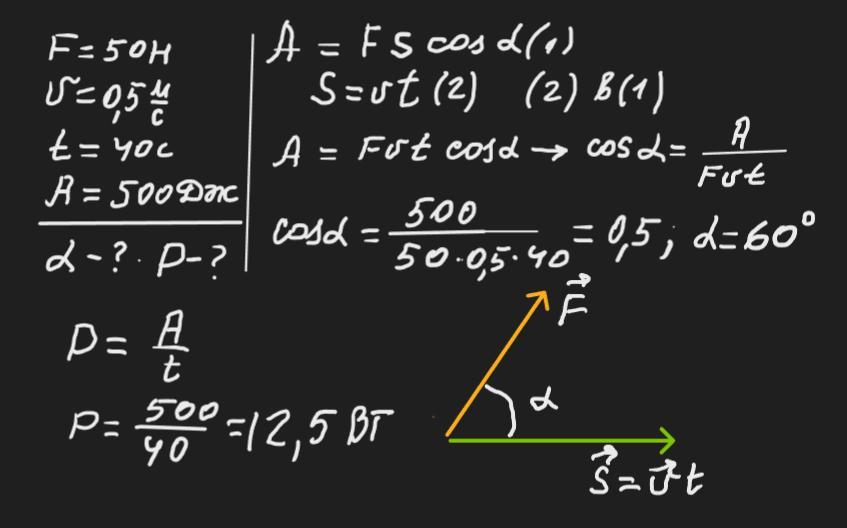 F = 50Н
υ = 0,5 м/с
t = 40с
A = 500Дж
α - ? P - ?
A = F S cos α (1)
S = υt (2) (2) в (1)
A = Fυt cosα → cosα = A / Fυt
cosα = 500 / 50·0,5·40 = 0,5; α = 60°
P = A / t
P = 500 / 40 = 12,5 Вт
F⃗
α
S⃗ = υ⃗t